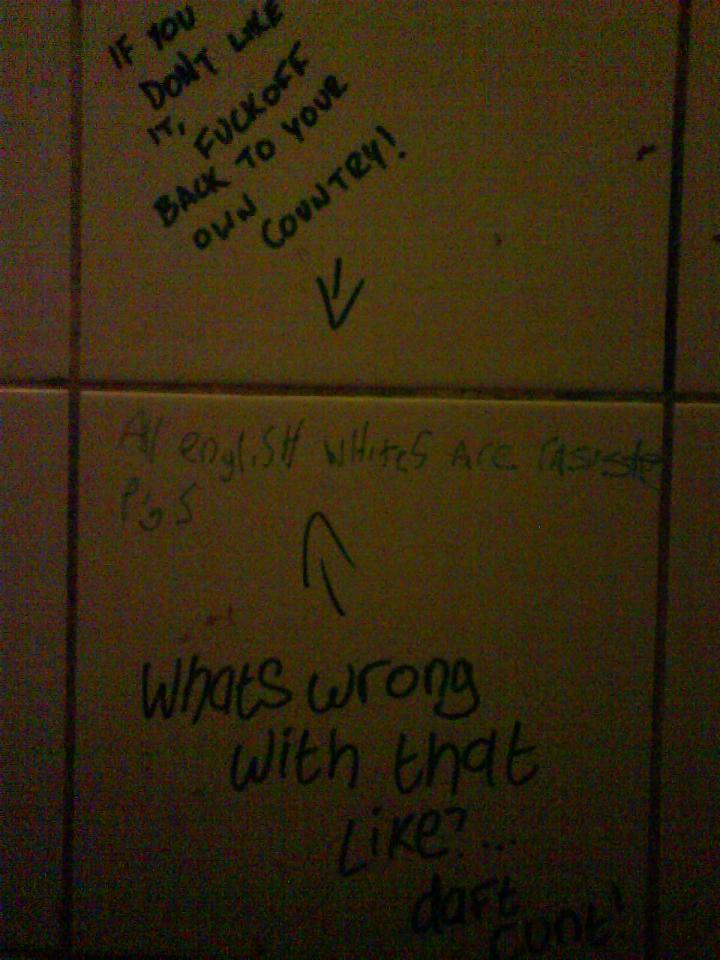 IF YOU
DONT LIKE
IT, FUCKOFF
BACK TO YOUR
OWN COUNTRY!
All englisH wHites Are rasiste
Pigs
Whats wrong
with that
Like?...
daft
cunt!